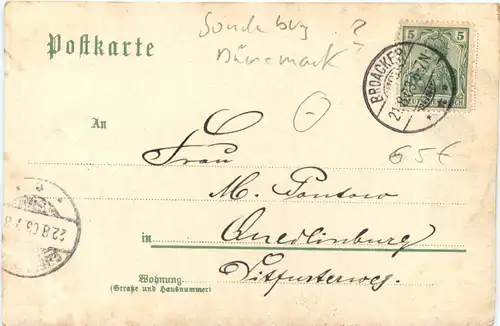 Sonderburg ?
Dänemark
Postkarte
5 5
BROACKER
21.8.03 6-7N
An
65€
Frau
M. Pantow
22.8.03
in Quedlinburg
Wohnung
(Straße und Hausnummer)